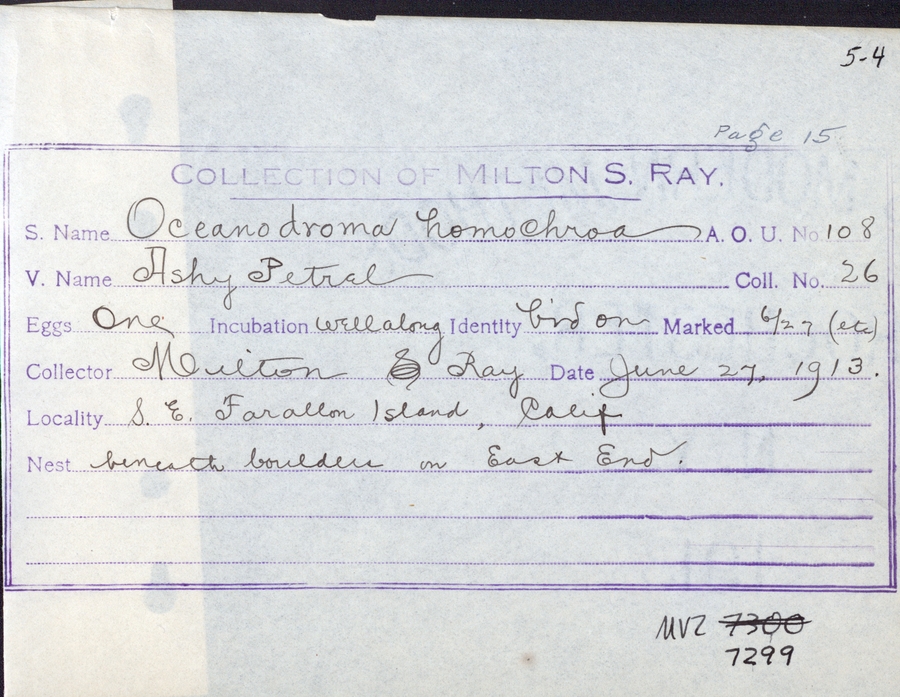 5-4
Page 15
COLLECTION OF MILTON S. RAY.
S. Name Oceanodroma homochroa A. O. U. No 108
V. Name Ashy Petral Coll. No. 26
Eggs One Incubation well along Identity bird on Marked 6/27 (etc)
Collector Milton S Ray Date June 27, 1913.
Locality S. E. Farallon Island, Calif
Nest beneath boulders on East End.
MVZ 7300
7299